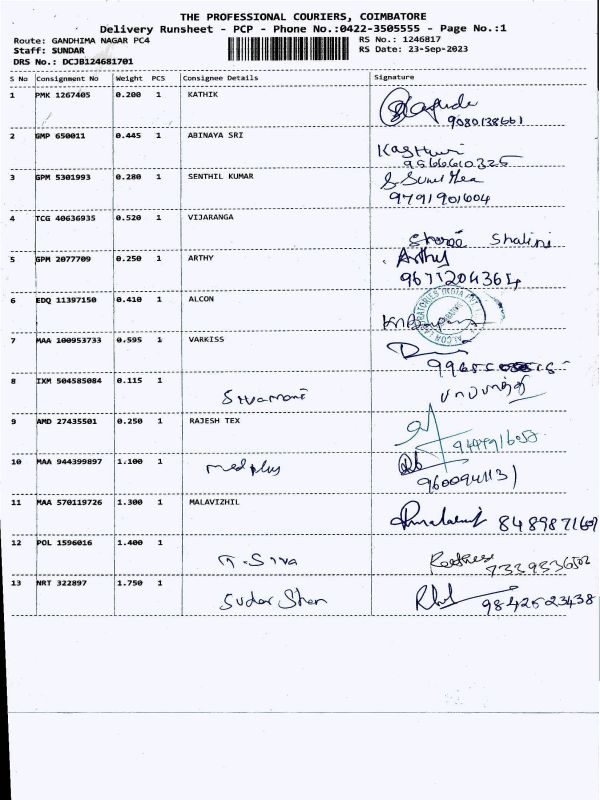 THE PROFESSIONAL COURIERS, COIMBATORE
Delivery Runsheet - PCP - Phone No.:0422-3505555 - Page No.:1
Route: GANDHIMA NAGAR PC4 RS No.: 1246817
Staff: SUNDAR RS Date: 23-Sep-2023
DRS No.: DCJB124681701
S No Consignment No Weight PCS Consignee Details Signature
1 PMK 1267405 0.200 1 KATHIK
9080138661
2 GMP 650011 0.445 1 ABINAYA SRI
9566610325
3 GPM 5301993 0.280 1 SENTHIL KUMAR
9791901604
4 TCG 40636935 0.520 1 VIJARANGA
Shalini
5 GPM 2077709 0.250 1 ARTHY Arthy
9671204364
6 EDQ 11397150 0.410 1 ALCON
7 MAA 100953733 0.595 1 VARKISS
8 IXM 504585084 0.115 1 Sivamani
9 AMD 27435501 0.250 1 RAJESH TEX
10 MAA 944399897 1.100 1 medplus
11 MAA 570119726 1.300 1 MALAVIZHIL
12 POL 1596016 1.400 1 T. Siva
13 NRT 322897 1.750 1 Sudar Shan
9842523438